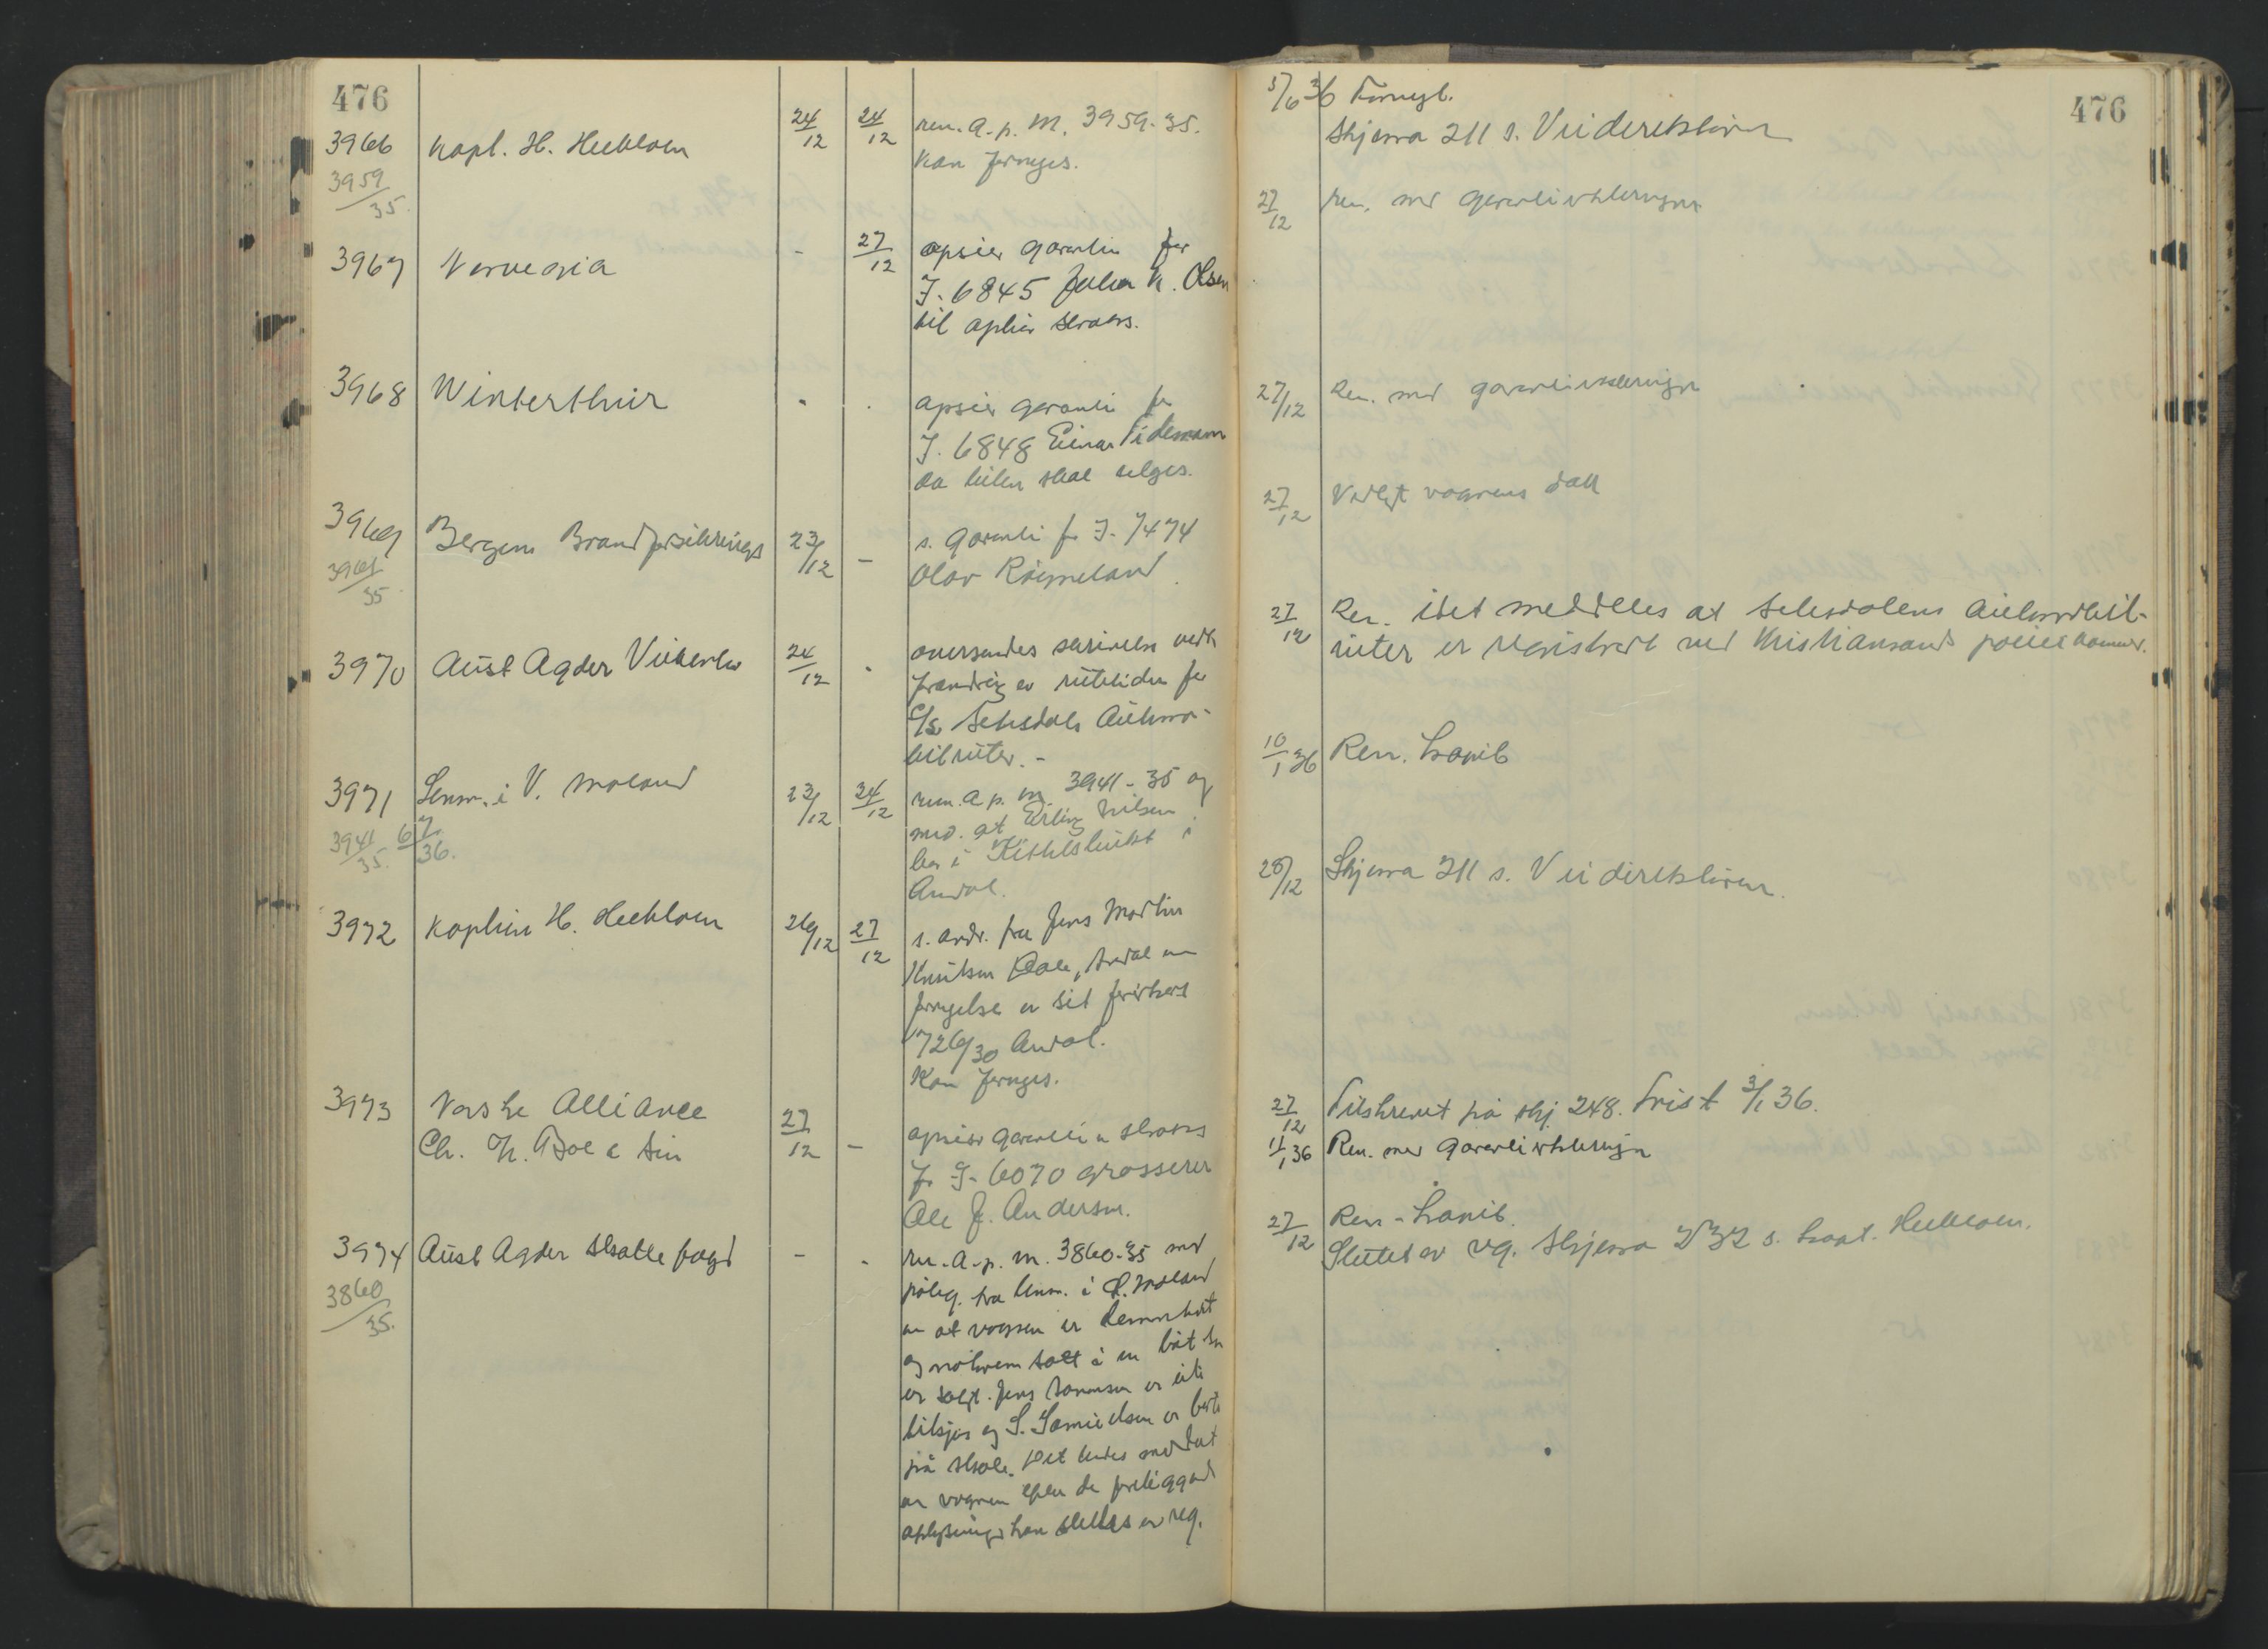 476
3966 Kapt. H. Heeblom 24/12 24/12 ren. a. p. m. 3959-35.
3959/35. Kan fornyes.
3967 Norvegia - 27/12 opsier garanti for
J. 6845 Johan K. Olsen
til ophør straks.
3968 Winterthur - - opsier garanti for
J. 6848 Einar Tidemann
da bilen skal selges.
3969 Bergens Brandforsikrings 23/12 - s. garanti for J. 7474
35 Olav Rismeland.
3970 Aust Agder Veikontor 24/12 - oversendes skrivelse vedk.
forandring av rutetiden for
A/S Setesdals Automo-
bilruter. -
3971 Lensm. i V. Moland 23/12 24/12 ren. a. p. m. 3941-35 og
3941/35. 67/36. med. at Erling Nilsen
bor i Kittelsbukt i
Arendal.
3972 Kaptein H. Heeblom 26/12 27/12 s. andr. fra Jens Martin
Knutsen Dale, Arendal om
fornyelse av sit førerkort
726/30 Arendal.
Kan fornyes.
3973 Norske Alliance 27/12 - opsier garanti straks
Ch. H. Boe & Søn for J. 6070 grosserer
Ole J. Andersen.
3974 Aust Agder Skattefogd - - ren. a. p. m. 3860-35 med
3860/35. påteg. fra lensm. i Ø. Moland
om at vognen er demontert
og motoren satt i en båt som
er solgt. Jens Sørensen er ute
tilsjøs og S. Samuelsen er borte
på skole. Det bedes meddelt
om vognen efter de foreliggende
oplysninger kan slettes av reg.
476
5/6 36 Fornyet.
Skjema 211 s. Veidirektøren
27/12 Ren. med garantierklæringen
27/12 Ren. med garantierklæringen
27/12 Vedlagt vognens dall
27/12 Ren. idet meddeles at Setesdalens Automobil-
ruter er registrert ved Kristiansands politikammer.
10/1 36 Ren. kopieb
28/12 Skjema 211 s. Veidirektøren.
27/12 Tilskrevet på skj. 248. Frist 3/1 36.
11/1 36 Ren. med garantierklæringen
27/12 Ren. kopieb.
Slettet av reg. Skjema 232 s. kapt. Heeblom.